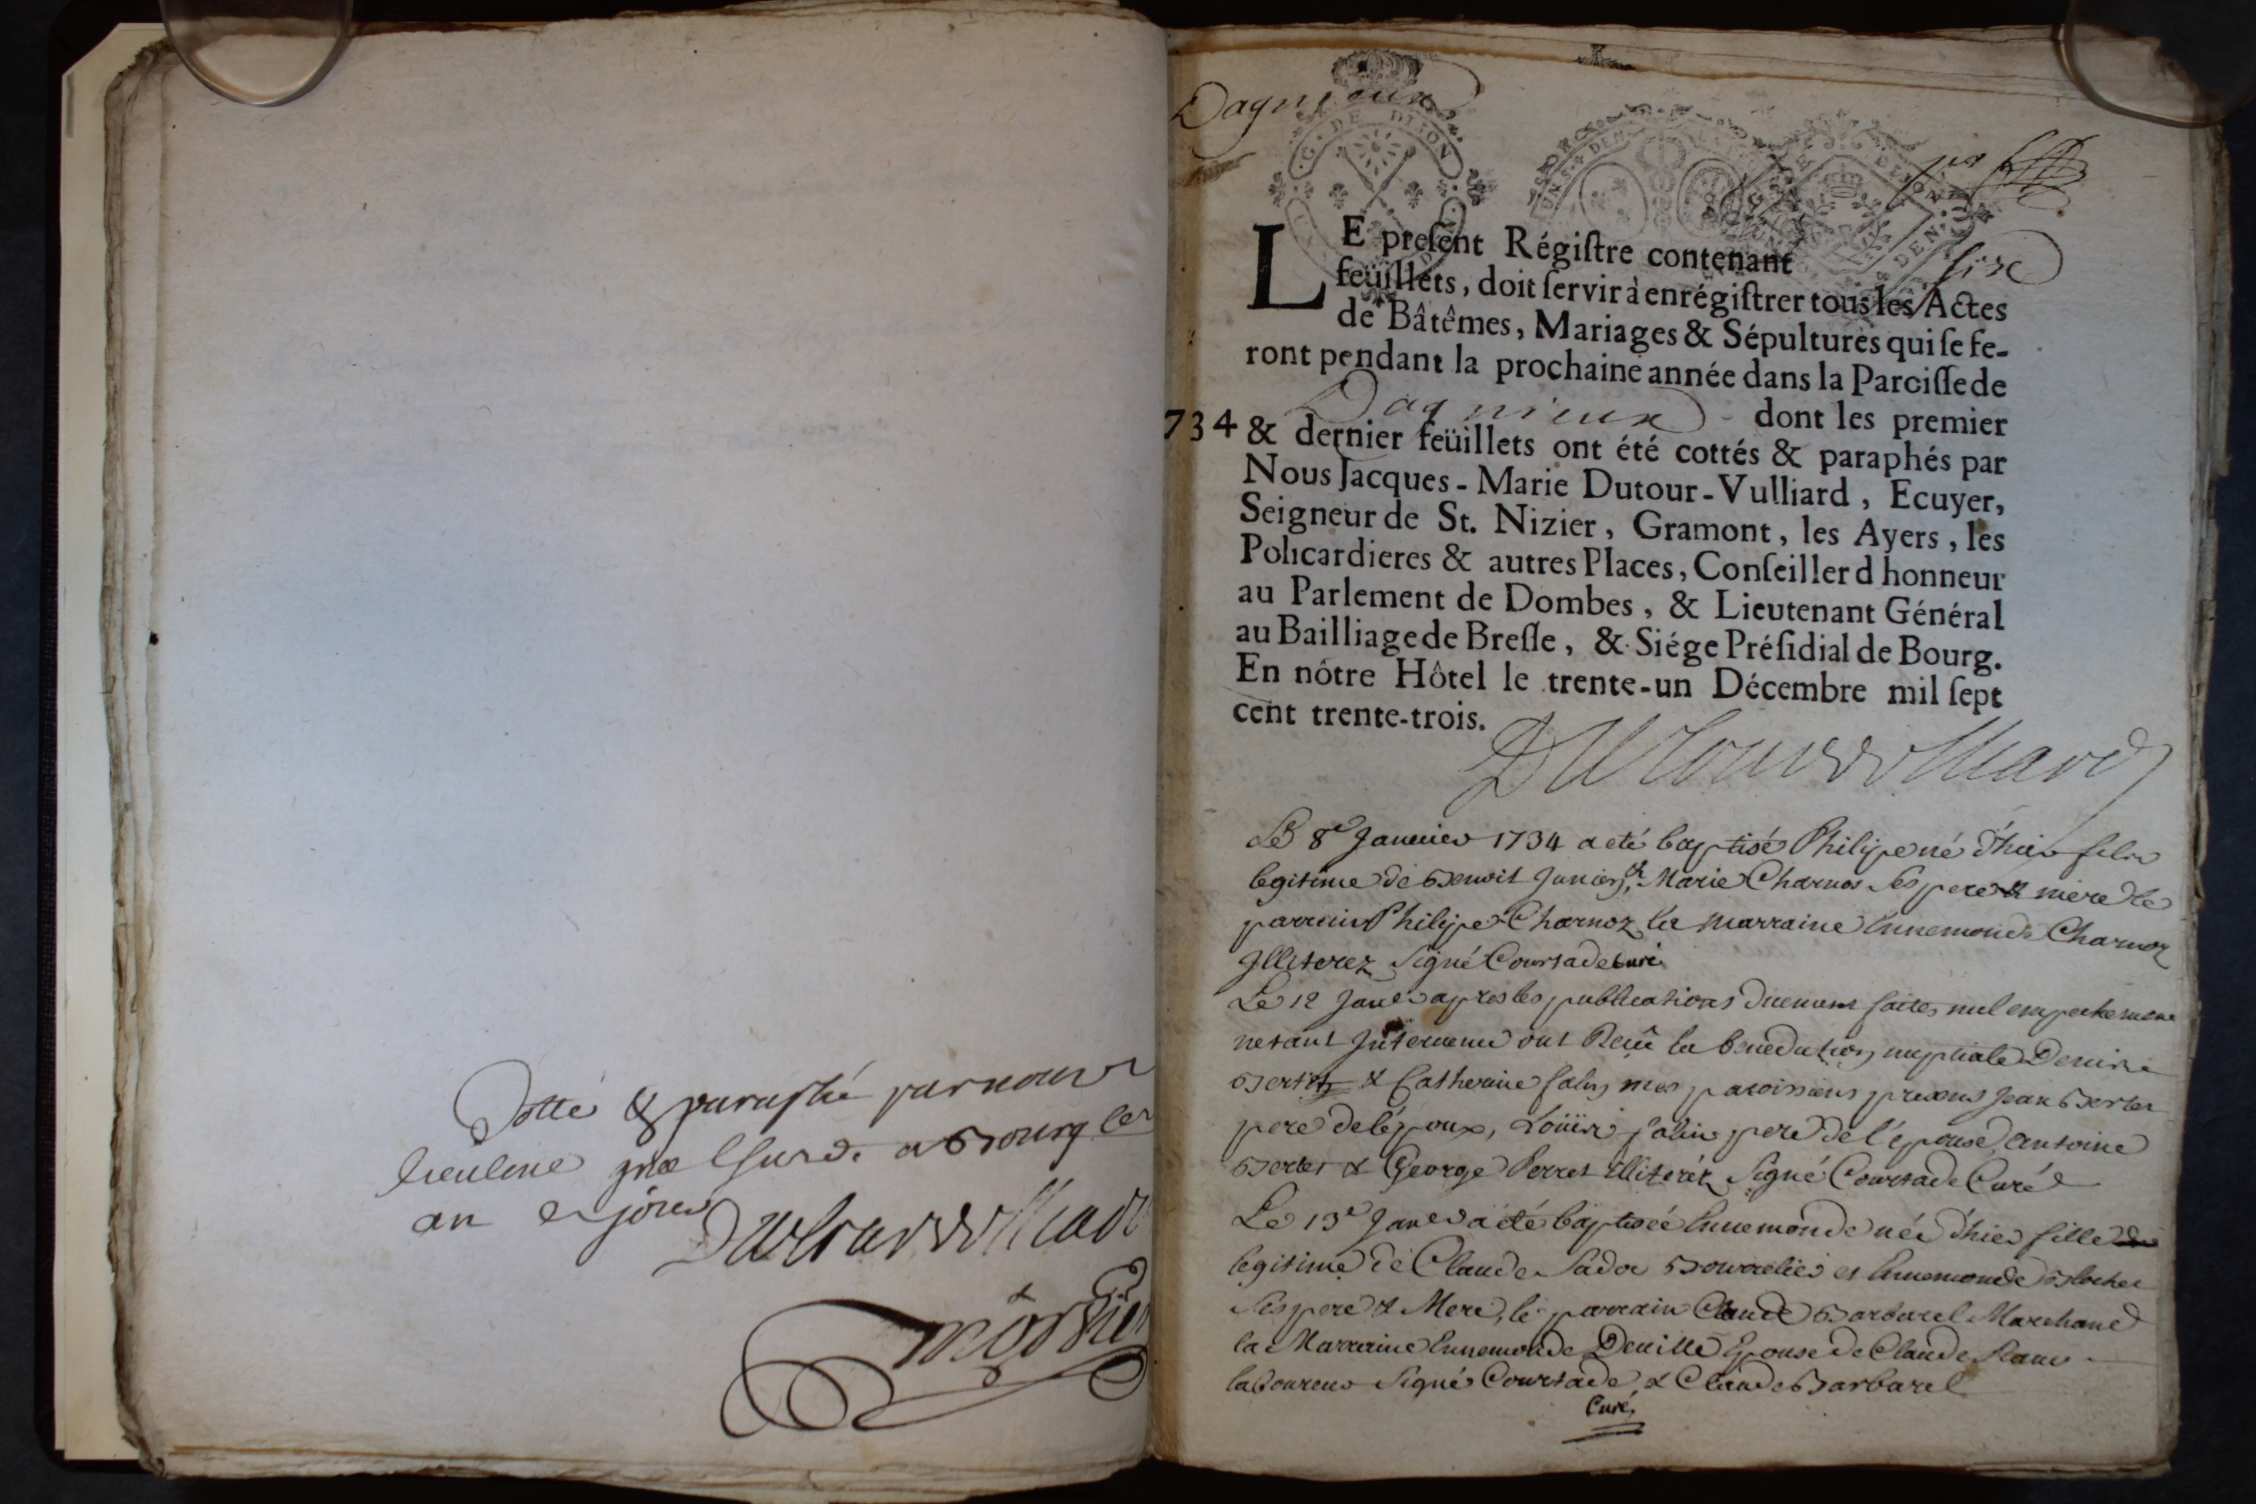 Cotté & paraphé par nous
lieutenant gnâl Susd. a Bourg les
an & jour
Dutour Vulliard
Dagnieux
G. DE DIJON
LE preſent Régiſtre contenant six
feüillets, doit ſervir à enrégiſtrer tous les Actes
de Bâtêmes, Mariages & Sépultures qui ſe fe-
ront pendant la prochaine année dans la Parciſſe de
Dagnieux dont les premier
734 & dernier feüillets ont été cottés & paraphés par
Nous Jacques-Marie Dutour-Vulliard, Ecuyer,
Seigneur de St. Nizier, Gramont, les Ayers, les
Policardieres & autres Places, Conſeiller d honneur
au Parlement de Dombes, & Lieutenant Général
au Bailliage de Breſſe, & Siége Préſidial de Bourg.
En nôtre Hôtel le trente-un Décembre mil ſept
cent trente-trois.
Dutour Vulliard
Le 8e Januier 1734 a eté baptisé Philipe né d'hier fils
legitime de Benoit Junien & Marie Charnos Ses pere & mere le
parrain Philipe Charnoz la marraine Ennemonde Charnoz
Illiterez Signé Courtade curé
Le 12 Janer apres les publications duement faites nul empechement
netant Interuenu ont Reçû la benediction nuptiale Denis
Berter & Catherine Jalin mes paroissiens presens Jean Berter
pere de l'époux, Loüis Jalin pere de l'epouse, Antoine
Berter & George Perret Illiteréz Signé Courtade Curé
Le 13e Janer a été baptisée Ennemonde née d'hier fille
legitime de Claude Sadoc Bourrelier et Ennemonde Blochet
Ses pere & Mere, le parrain Claude Barbarel Marchand
la Marraine Ennemonde Deuille Epouse de Claude
laboureur Signés Courtade & Claude Barbarel
Curé,